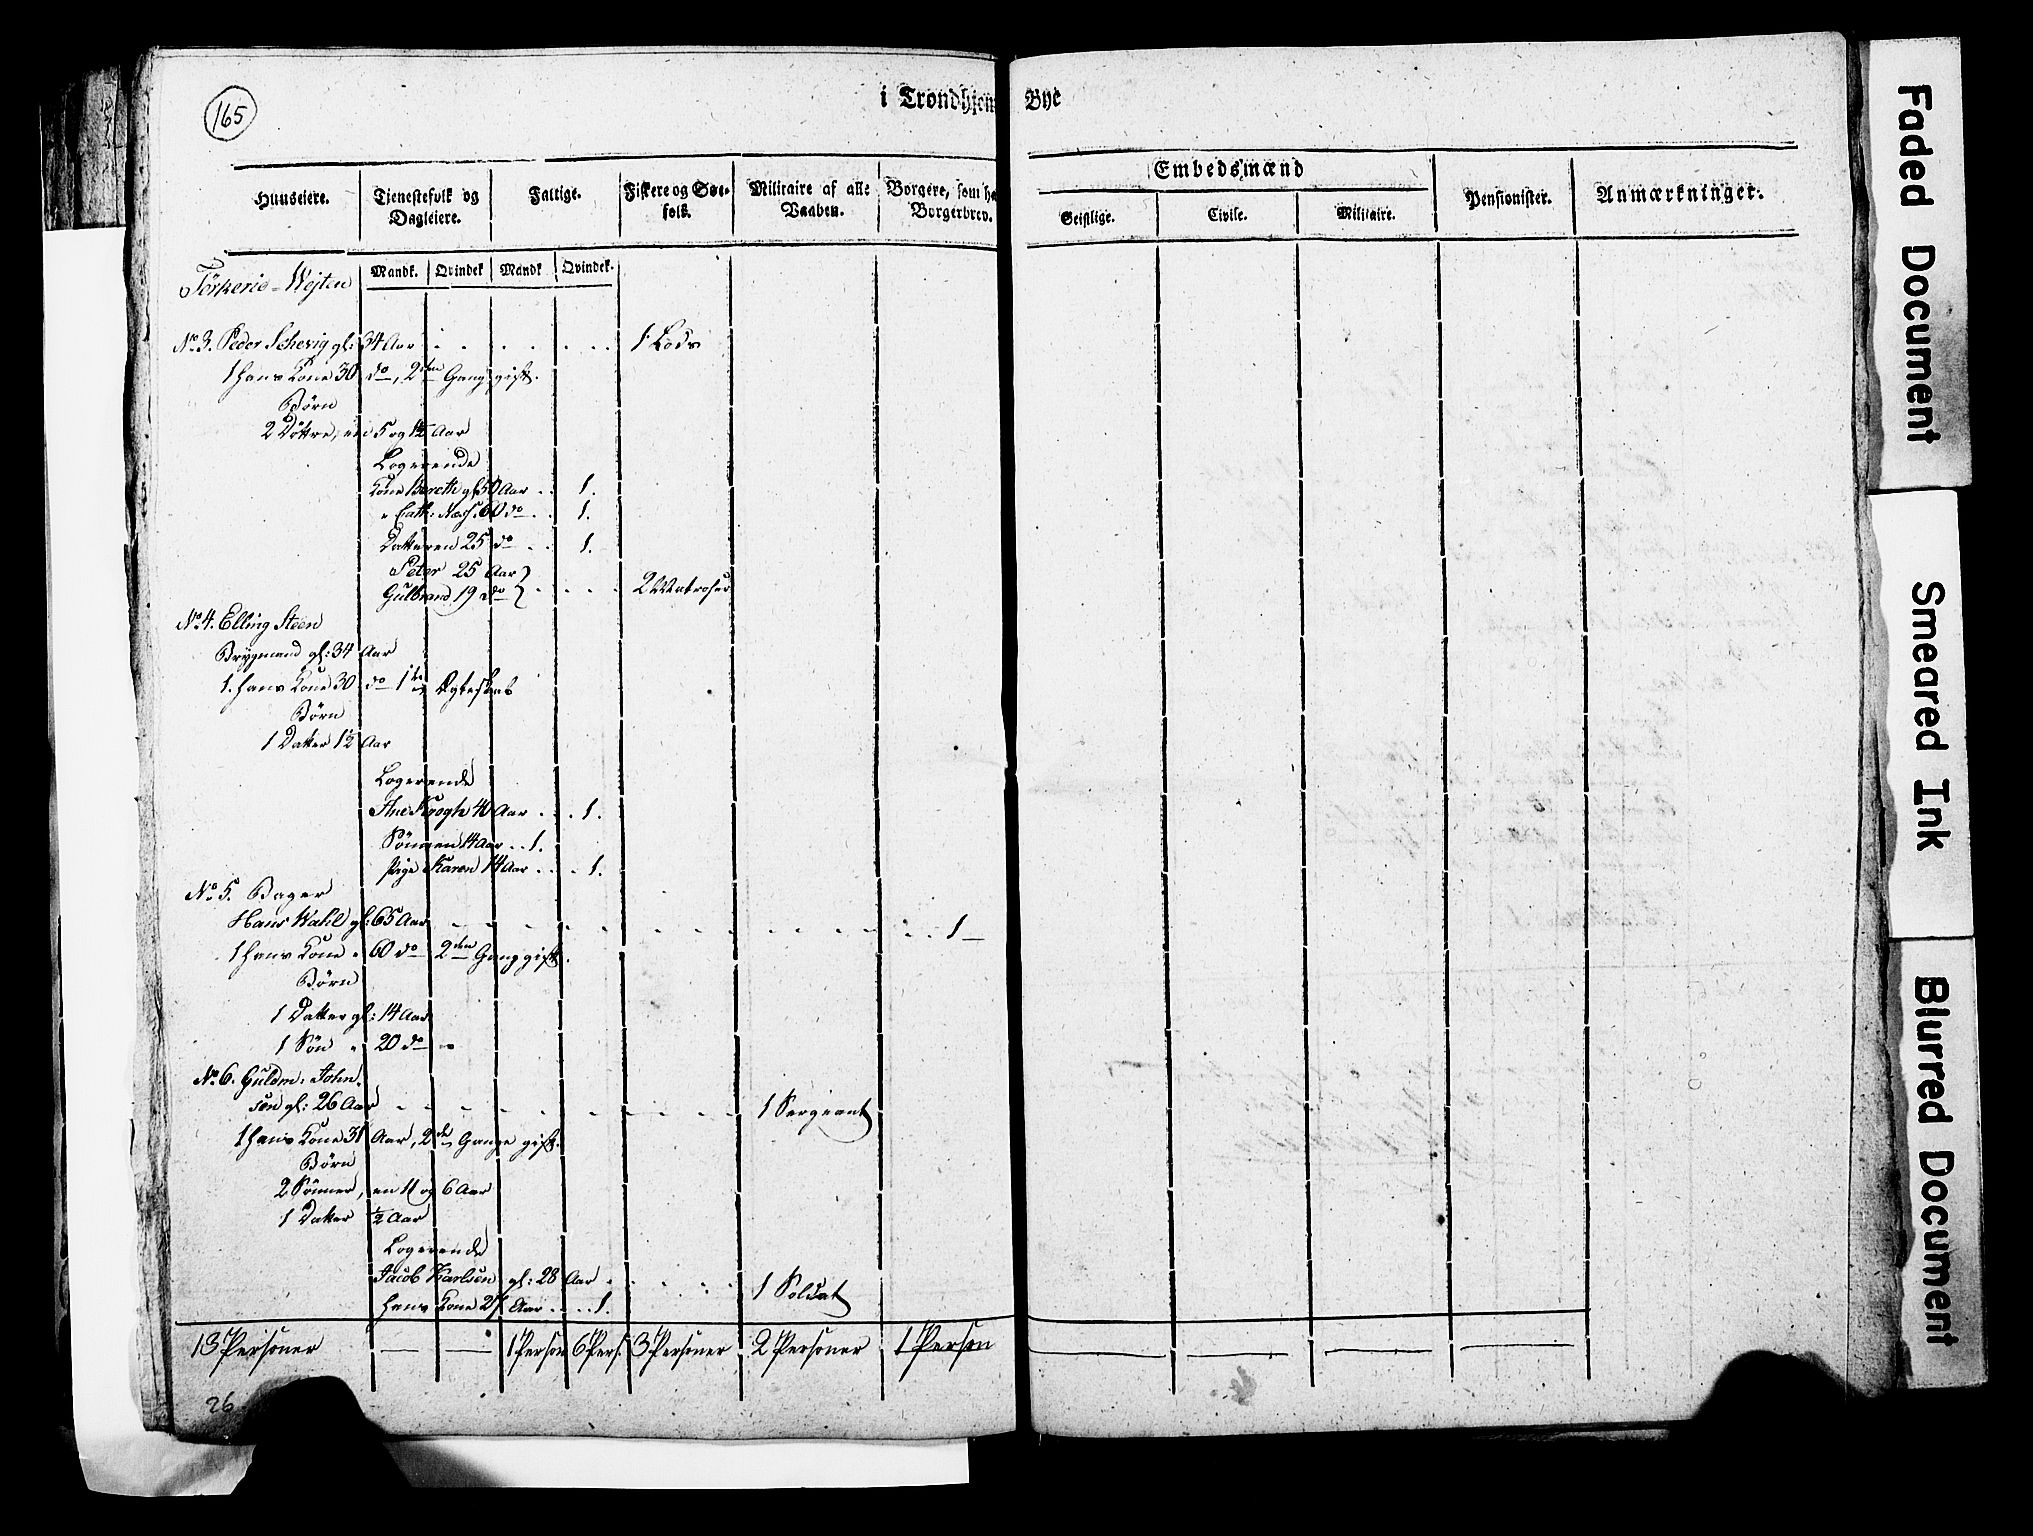 165
i Trondhjem Bye
Huuseiere.
Tjenestefolk og Dagleiere.
Fattige.
Fiskere og Søe-folk.
Militaire af alle Vaaben.
Borgere, som ha Borgerbrev.
Embedsmænd
Geistlige.
Civile.
Militaire.
Pensionister.
Anmærkninger.
Mandk. Qvindek Mandk Qvindek.
Törkerie=Wejten
No 3. Peder Schevig gl: 34 Aar 1 Lods
1 hans Kone 30 do, 2den Gang gift.
Börn
2 Döttre, en 5 og 1½ Aar
Logerende
Kone Bereth gl 50 Aar 1.
" Cath: Næss. 60 do 1.
Datteren 25 do 1.
Peter 25 Aar
Gulbrand 19 do 2 Matroser
No 4. Elling Steen
Brygmand gl: 34 Aar
1. hans Kone 30 do 1te Ægteskab
Börn
1 Datter 1½ Aar
Logerende
Ane Krogh 40 Aar 1.
Sönnen 14 Aar 1.
Pige Karen 14 Aar 1.
No 5. Bager
Hans Wahl gl: 65 Aar 1
1 hans Kone " 60 do 2den Gang gift.
Börn
1 Datter gl: 14 Aar
1 Sön " 20 do
No 6. Guldm: John-
sen gl: 26 Aar 1 Sergeant
1 hans Kone 31 Aar, 2de Gange gift.
Börn
2 Sönner, en 11 og 6 Aar
1 Datter ½ Aar
Logerende
Jacob Karlsen gl: 28 Aar 1 Soldat
hans Kone Aar 1.
13 Personer 1 Person 6 Pers. 3 Personer 2 Personer 1 Person
26
Faded Document
Smeared Ink
Blurred Document